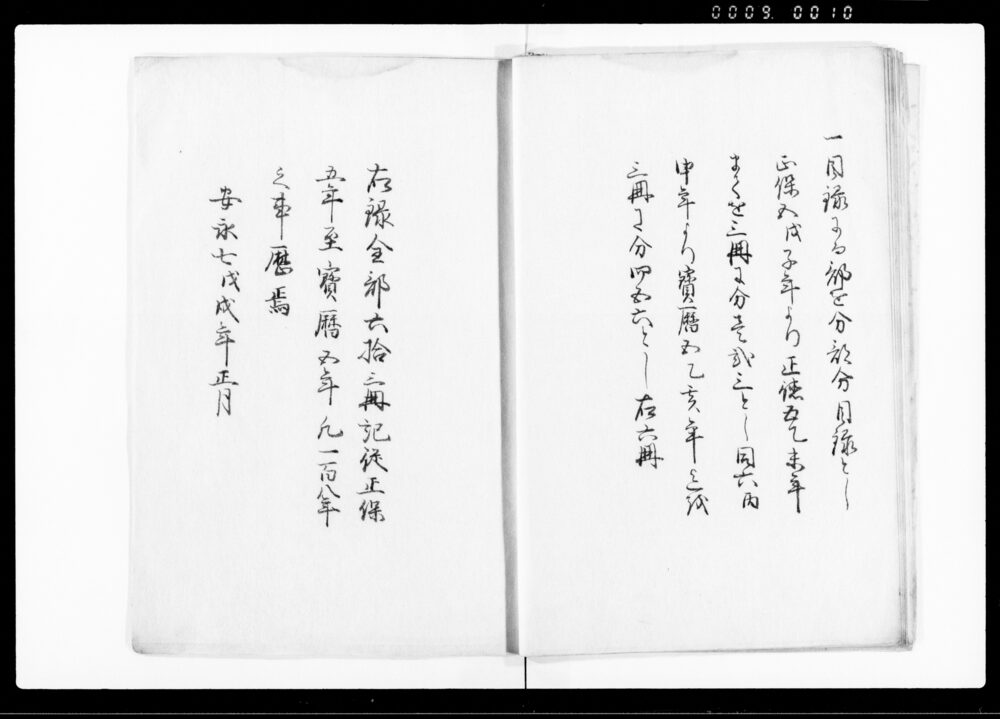 0009. 0010
一目録する部を分部分目録とし
正保五戊子年より正徳五乙未年
まてを三冊に分壱貳三とし同六丙
申年より寶暦五乙亥年迄を
三冊に分四五六とし右六冊
右録全部六拾三冊記従正保
五年至寶暦五年凡一百八年
之事暦焉
安永七戊戌年正月